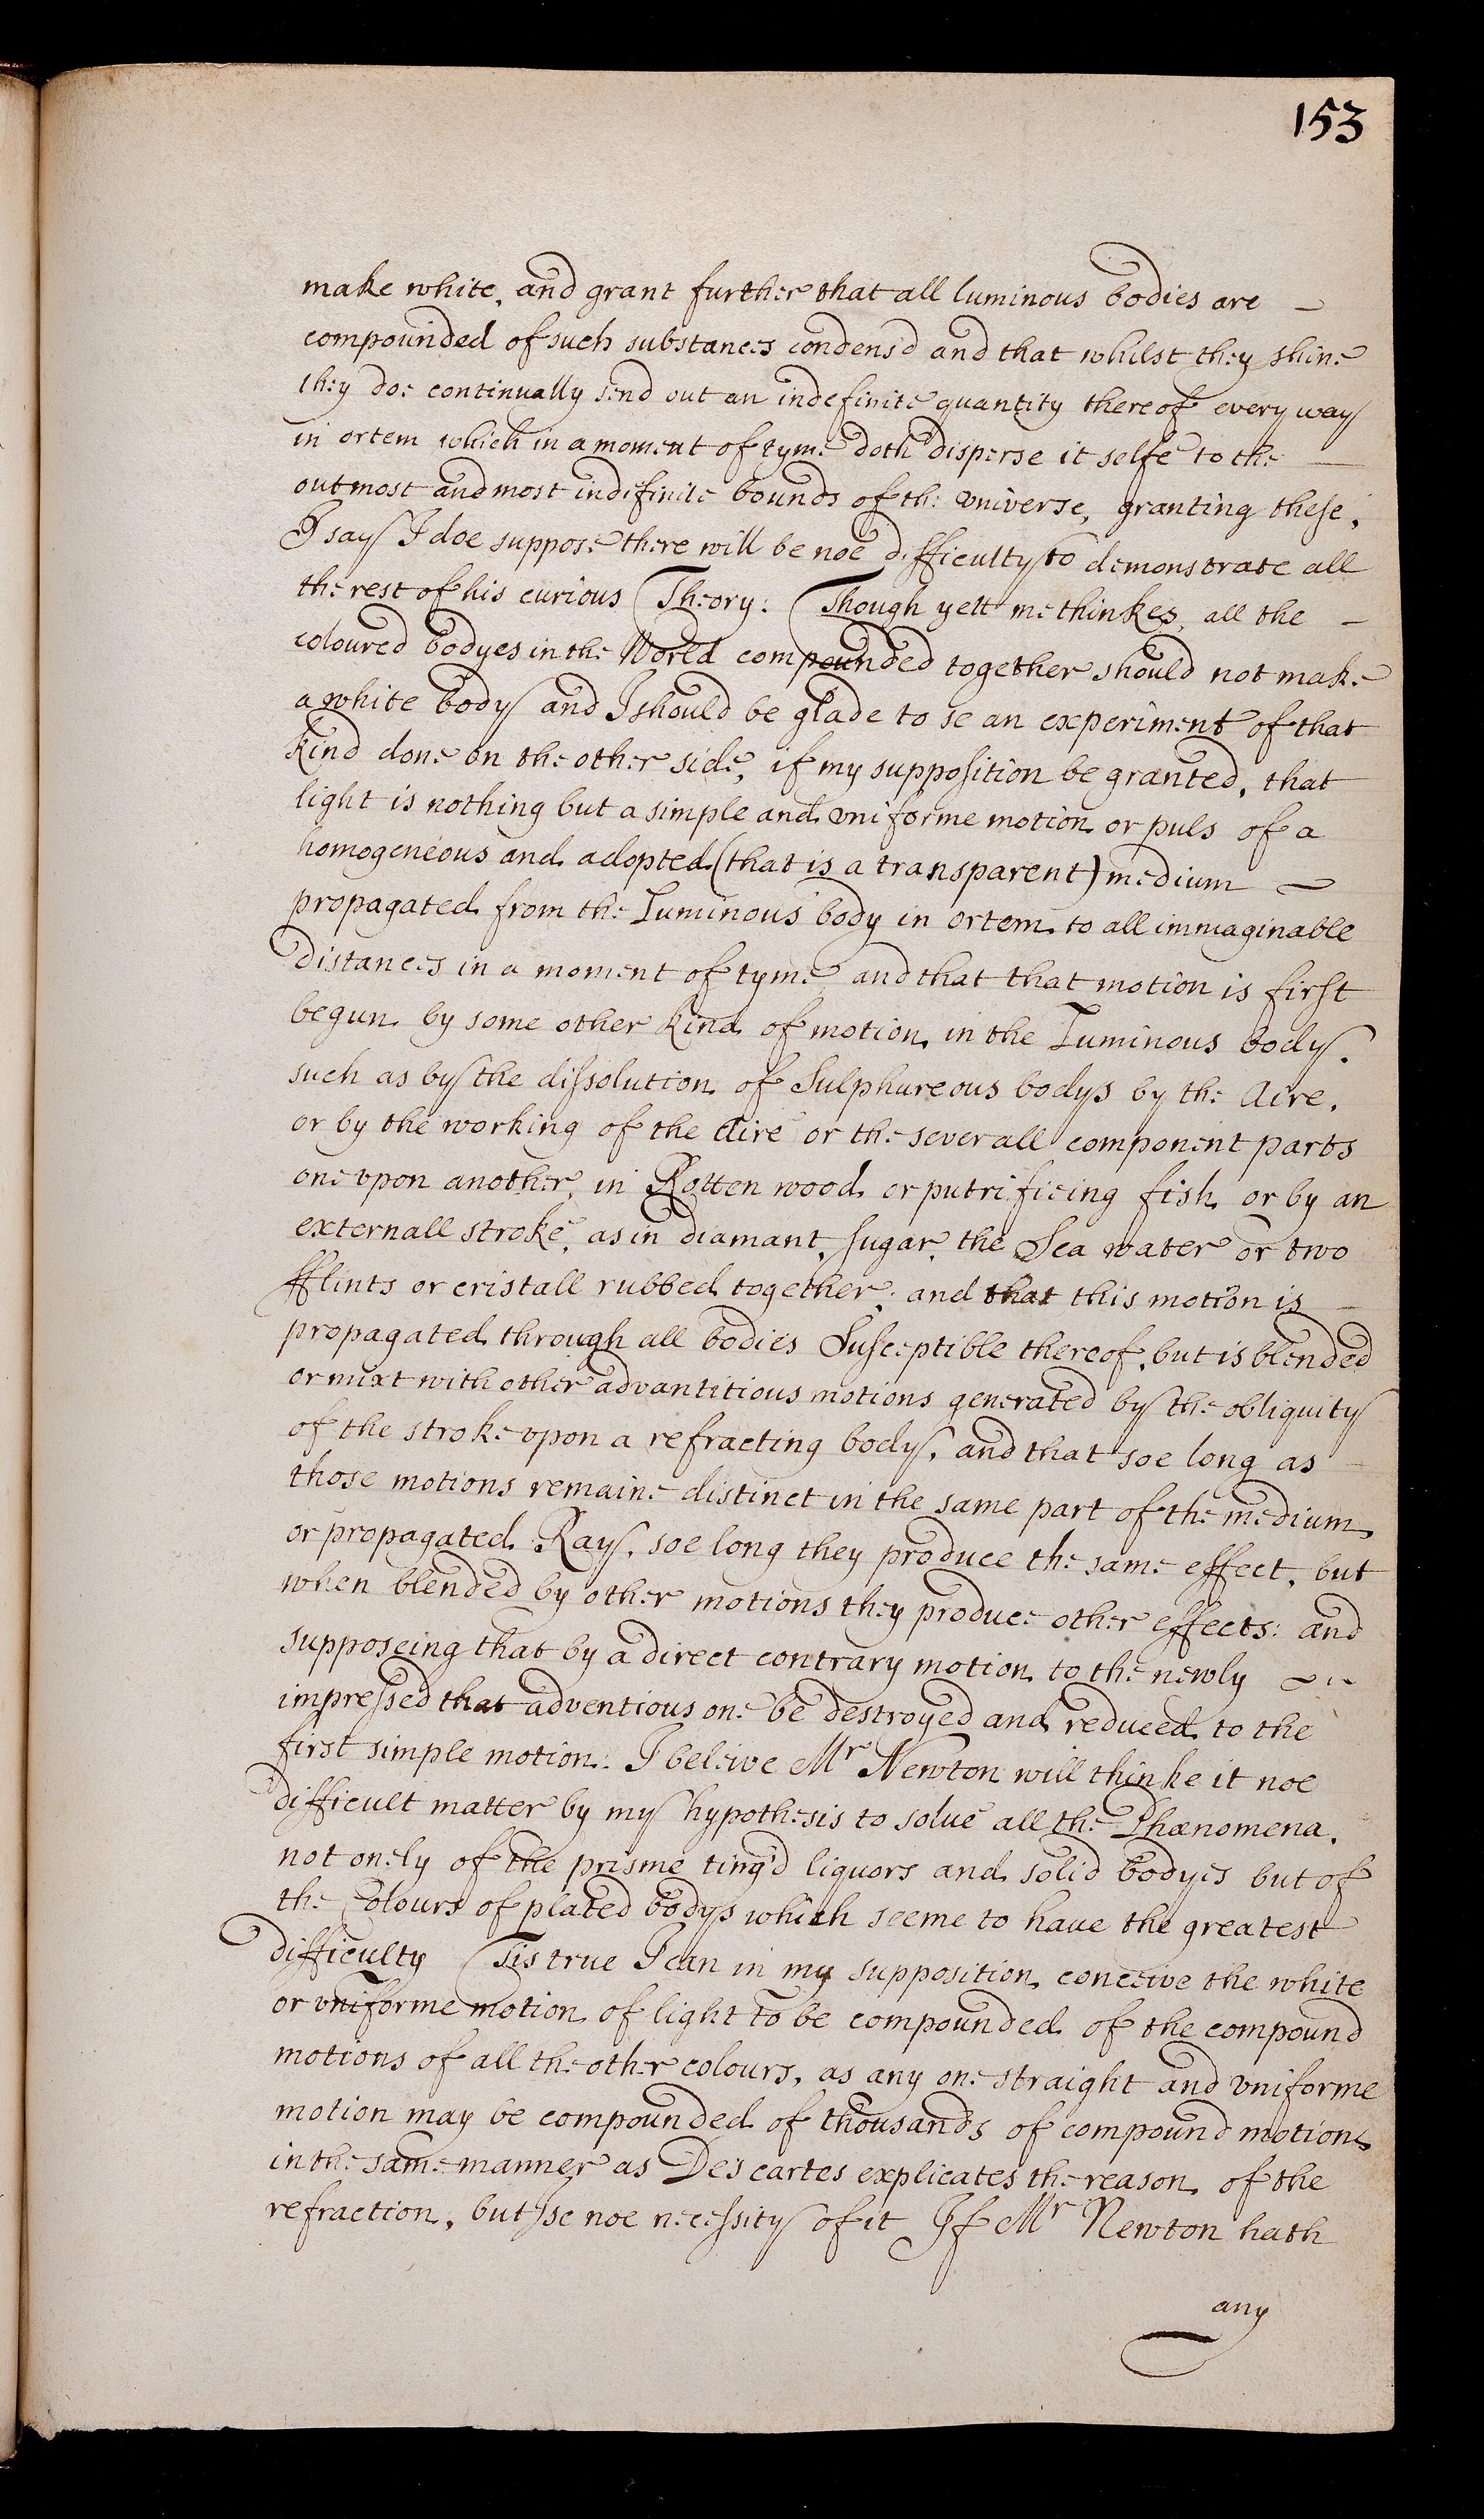 153
make white, and grant further that all luminous bodies are –
compounded of such substances condens'd and that whilst they shine
they doe continually send out an indefinite quantity thereof every way
in ortem which in a moment of tyme doth disperse it selfe to the –
outmost and most indefinite bounds of the vniverse, granting these,
I say I doe suppose there will be noe difficulty to demonstrate all
the rest of his curious Theory: Though yett methinkes, all the –
coloured bodyes in the World compounded together should not make
a white body and I should be glade to se an experiment of that
kind done on the other side, if my supposition be granted, that
light is nothing but a simple and vniforme motion or puls of a
homogeneous and adopted (that is a transparent) medium –
propagated from the Luminous body in ortem to all immaginable
distances in a moment of tyme and that that motion is first
begun by some other kind of motion in the Luminous body.
such as by the dissolution of Sulphureous bodys by the Aire.
or by the working of the Aire or the severall component parts
one vpon another, in Rotten wood or putrificing fish or by an
externall stroke, as in diamant, sugar, the Sea water or two
fflints or cristall rubbed together; and that this motion is –
propagated through all bodies Susceptible thereof, but is blended
or mixt with other advantitious motions generated by the obliquity
of the stroke vpon a refracting body, and that soe long as –
those motions remaine distinct in the same part of the medium
or propagated Ray, soe long they produce the same effect, but
when blended by other motions they produce other effects: and
supposeing that by a direct contrary motion to the newly –
impressed that adventious one be destroyed and reduced to the
first simple motion: I beleive Mr Newton will thinke it noe
difficult matter by my hypothesis to solve all the Phænomena,
not onely of the prisme ting'd liquors and solid bodyes but of
the Colours of plated bodys which seeme to have the greatest
difficulty Tis true I can in my supposition conceive the white
or vniforme motion of light to be compounded of the compound
motions of all the other colours, as any one straight and vniforme
motion may be compounded of thousands of compound motions
in the same manner as Des cartes explicates the reason of the
refraction, but I se noe necessity of it If Mr Newton hath
any